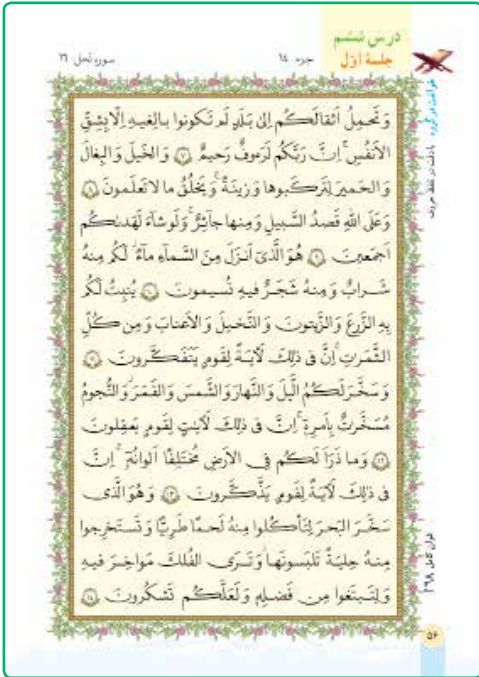 درس ششم
جلسهٔ اوّل
جزء ١٤
سوره نحل ١٦
خواندن در گروه
با دقت در تلفظ حروف
وَ تَحمِلُ اَثقالَكُم اِلىٰ بَلَدٍ لَم تَكونوا بالِغيهِ اِلّا بِشِقِّ
الاَنفُسِ اِنَّ رَبَّكُم لَرَءوفٌ رَحيمٌ ٧ وَ الخَيلَ وَ البِغالَ
وَ الحَميرَ لِتَركَبوها وَ زينَةً وَ يَخلُقُ ما لا تَعلَمونَ ٨
وَ عَلَى اللّٰهِ قَصدُ السَّبيلِ وَ مِنها جائِرٌ وَ لَو شاءَ لَهَدىٰكُم
اَجمَعينَ ٩ هُوَ الَّذى اَنزَلَ مِنَ السَّماءِ ماءً لَكُم مِنهُ
شَرابٌ وَ مِنهُ شَجَرٌ فيهِ تُسيمونَ ١٠ يُنبِتُ لَكُم
بِهِ الزَّرعَ وَ الزَّيتونَ وَ النَّخيلَ وَ الاَعنابَ وَ مِن كُلِّ
الثَّمَرٰتِ اِنَّ فى ذٰلِكَ لَآيَةً لِقَومٍ يَتَفَكَّرونَ ١١
وَ سَخَّرَ لَكُمُ الَّيلَ وَ النَّهارَ وَ الشَّمسَ وَ القَمَرَ وَ النُّجومُ
مُسَخَّرٰتٌ بِاَمرِهٖ اِنَّ فى ذٰلِكَ لَآيٰتٍ لِقَومٍ يَعقِلونَ
١٢ وَ ما ذَرَأَ لَكُم فِى الاَرضِ مُختَلِفًا اَلوانُهٗ اِنَّ
فى ذٰلِكَ لَآيَةً لِقَومٍ يَذَّكَّرونَ ١٣ وَ هُوَ الَّذى
سَخَّرَ البَحرَ لِتَأكُلوا مِنهُ لَحمًا طَرِيًّا وَ تَستَخرِجوا
مِنهُ حِليَةً تَلبَسونَها وَ تَرَى الفُلكَ مَواخِرَ فيهِ
وَ لِتَبتَغوا مِن فَضلِهٖ وَ لَعَلَّكُم تَشكُرونَ ١٤
قرآن کامل ٢٦٨
٥۶